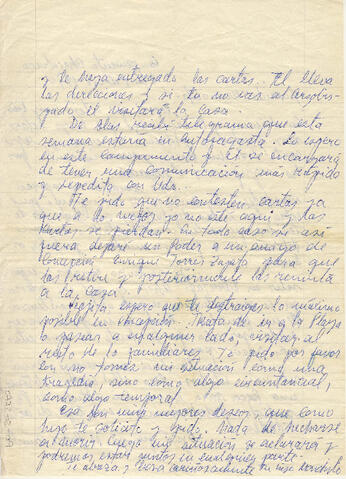 y te haya entregado las cartas. El lleva
las direcciones y si tu no vas al arzobis-
pado el visitará la casa
De Blas recibí telegrama que esta
semana estaria en Antofagasta. Lo espero
en este campamento y él se encargará
de tener una comunicación más rápida
y expedita con Uds.
Te pido que no contesten cartas ya
que a lo mejor yo no esté aqui y las
mias se pierdan. En todo caso si asi
fuera dejaré un poder a un amigo de
Concepción Enrique Torres Zapata para que
las retire y posteriormente las remita
a la casa.
espero que te distraigas lo máximo
posible en Concepción. Trata de ir a la Plaza
o pasear a cualquier lado, visitar al
resto de los familiares. Te pido por favor
con no tomes mi situación como una
tragedia, sino como algo circunstancial,
como algo temporal
Esos son mis mejores deseos, que como
hijo te solicito y pido. Nada de echarse
a morir. Luego mi situación se aclarará y
podremos estar juntos en cualquier parte.
Te abraza y besa cariñosamente tu hijo